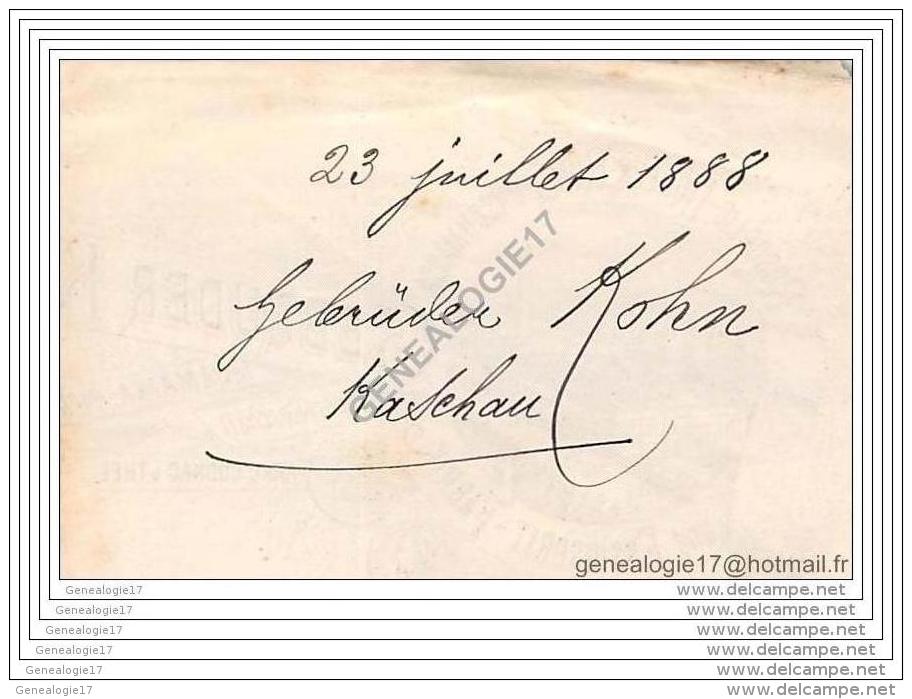 23 juillet 1888
Gebrüder Kohn
Kaschau
GENEALOGIE17
genealogie17@hotmail.fr
Genealogie17 www.delcampe.net
Genealogie17 www.delcampe.net
Genealogie17 www.delcampe.net
Genealogie17 www.delcampe.net
Genealogie17 www.delcampe.net
Genealogie17 www.delcampe.net